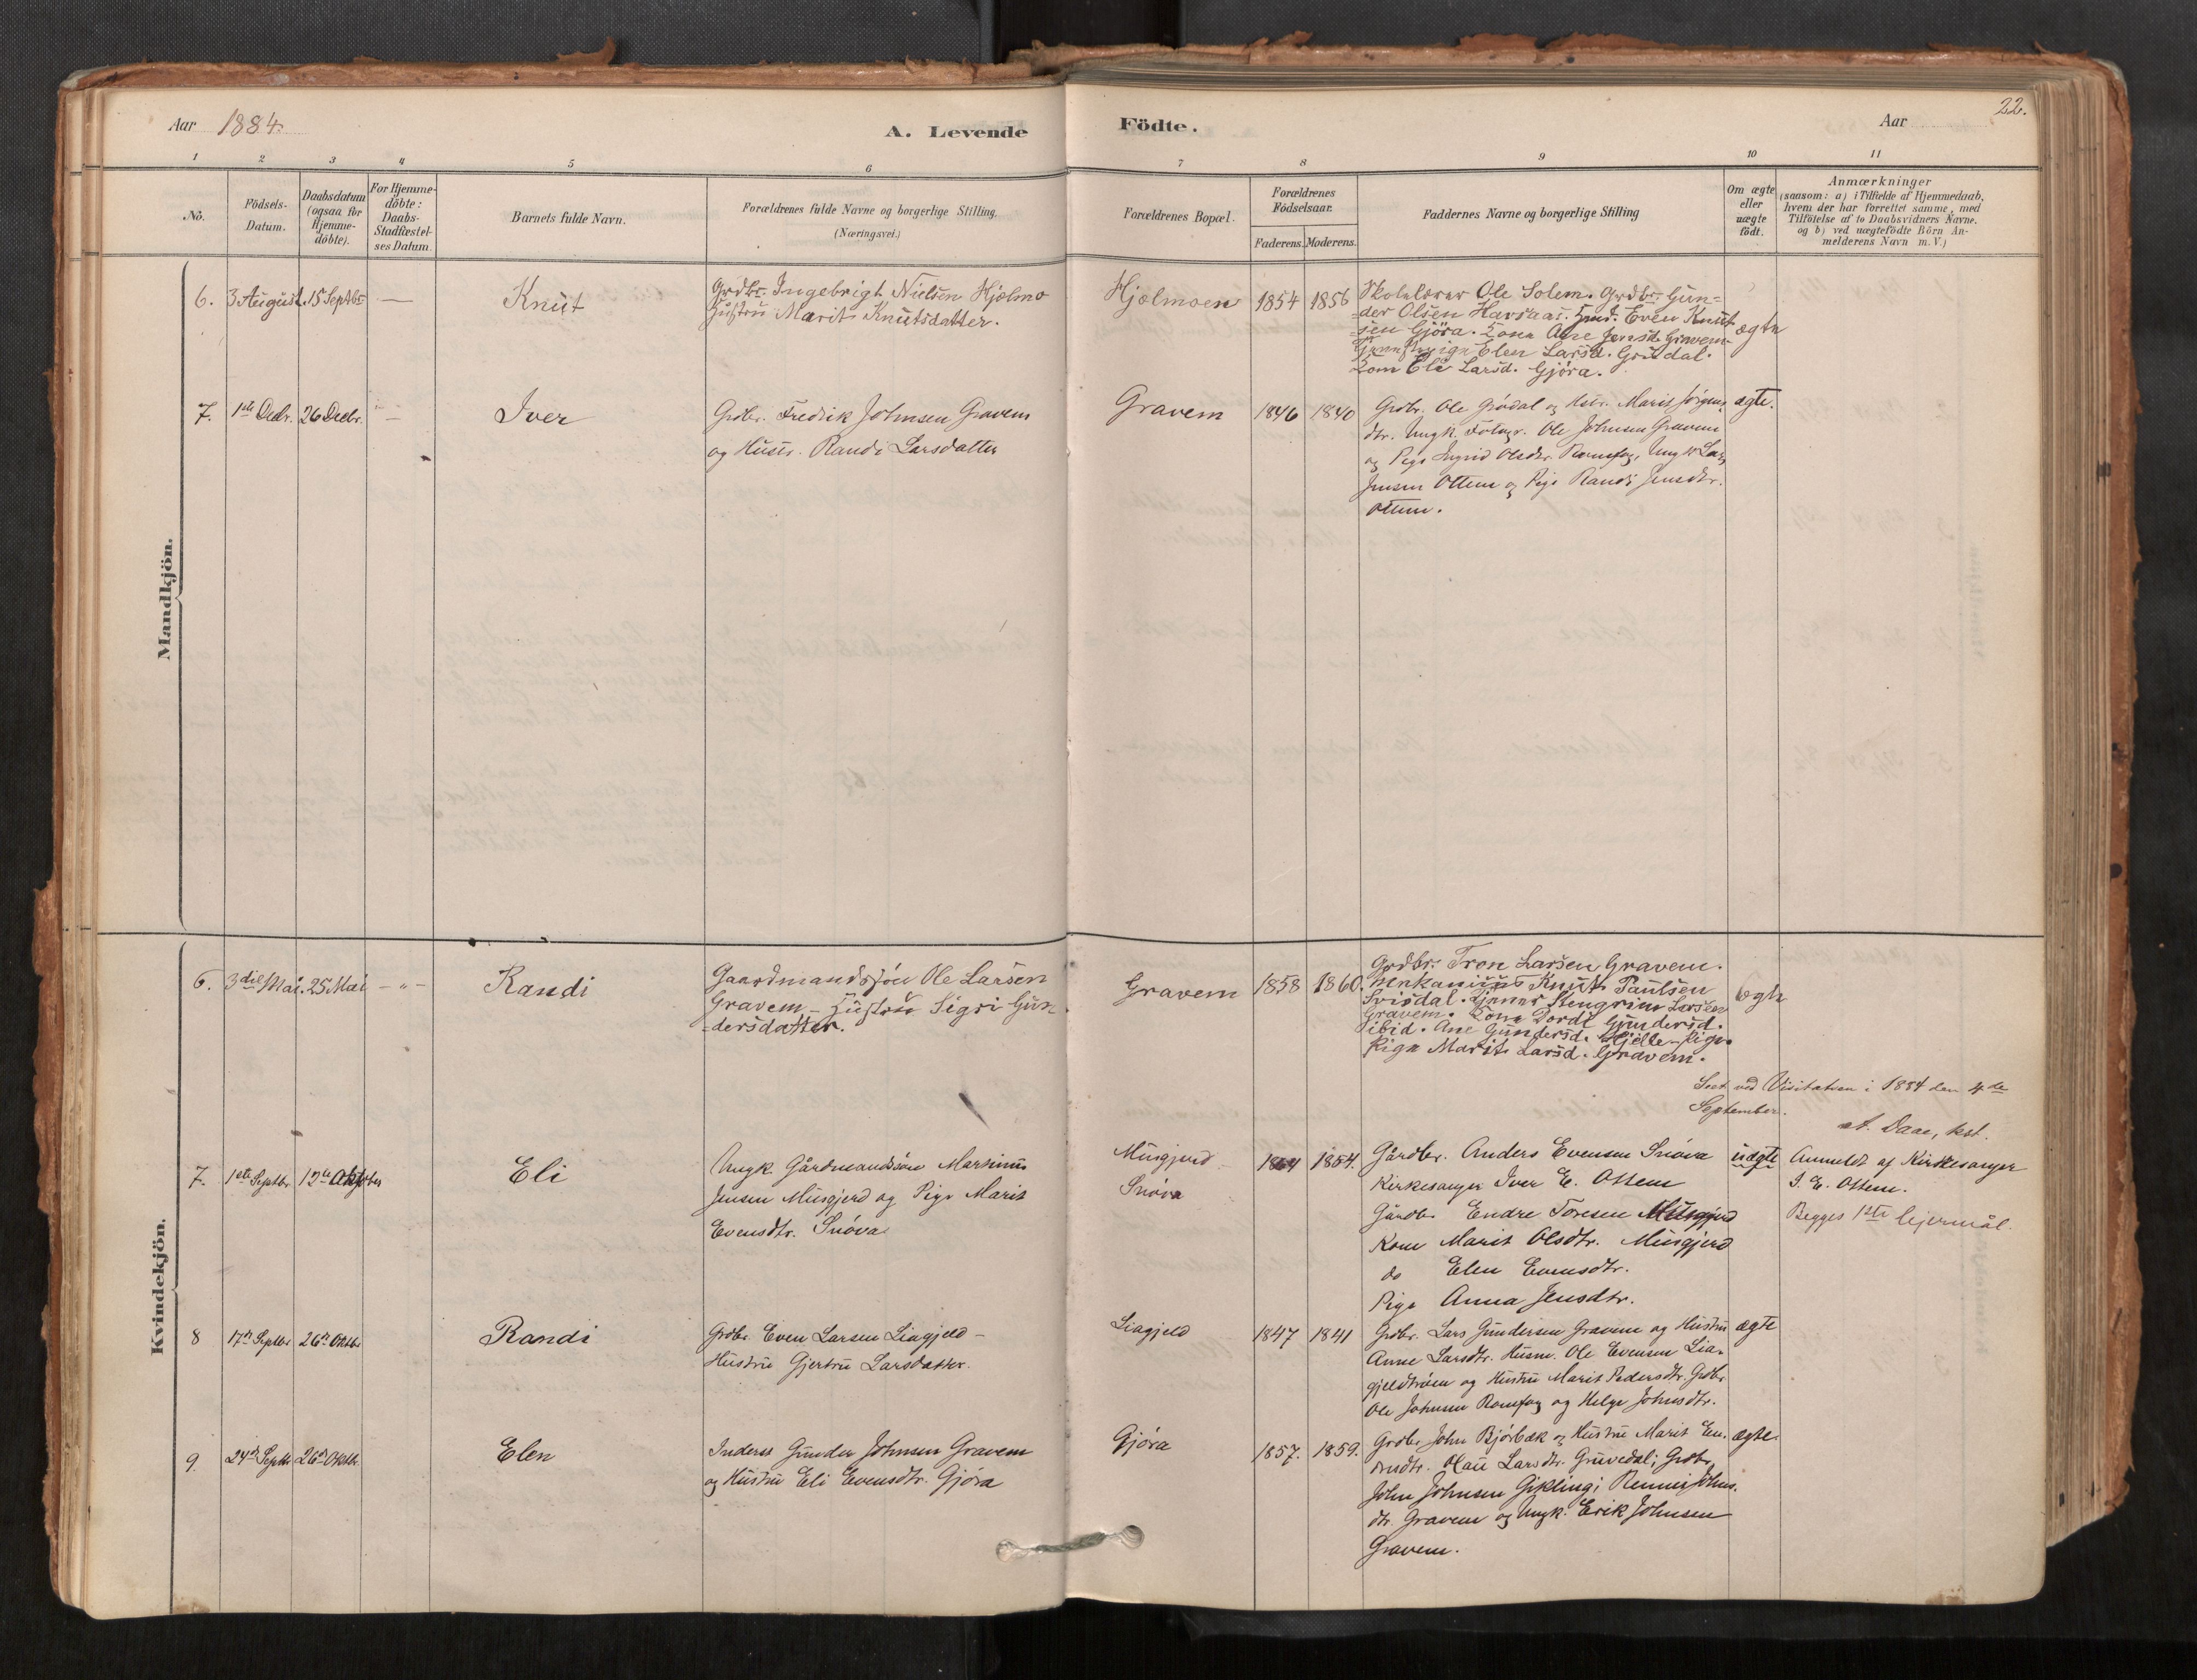 Aar 1884.
A. Levende
Födte.
Aar
22.
1 2 3 4 5 6 7 8 9 10 11
No.
Födsels-
Datum.
Daabsdatum
(ogsaa for
Hjemme-
döbte).
For Hjemme-
döbte:
Daabs-
Stadfæstel-
ses Datum.
Barnets fulde Navn.
Forældrenes fulde Navne og borgerlige Stilling.
(Næringsvei.)
Forældrenes Bopæl.
Forældrenes
Födselsaar.
Faderens. Moderens.
Faddernes Navne og borgerlige Stilling
Om ægte
eller
uægte
födt.
Anmærkninger
(saasom: a) i Tilfælde af Hjemmedaab,
hvem der har forrettet samme, med
Tilföielse af to Daabsvidners Navne,
og b) ved uægtefödte Börn An-
melderens Navn m. V.)
Mandkjön.
6. 3 August. 15 Septbr — Knut
Grdbr. Ingebrigt Nielsen Hjælmo
Hustru Marit Knutsdatter.
Hjælmoen 1854 1856
Skolelærer Ole Solem. Grdbr. Gun-
der Olsen Havsaas. Even Knut
sen Gjöra. Kone Ane Jensd. Gravem
Elen Larsd. Grudal.
Kone Eli Larsd. Gjöra.
ægte
7. 1ste Decbr. 26 Decbr. — Iver
Grdbr. Fredrik Johnsen Gravem
og Hustr. Randi Larsdatter
Gravem 1846 1840
Grdbr. Ole Grödal og Hstr. Marit Jörgens
dtr. Ungk. Fotogr. Ole Johnsen Gravem
og Pige Ingrid Olsdtr. Romfog, Ungk Lars
Jensen Ottem og Pige Randi Jensdtr.
Ottem.
ægte.
Kvindekjön.
6. 3die Mai. 25 Mai - " - Randi
Gaardmandssön Ole Larsen
Gravem - Hustru Sigri Gun
-dersdatter.
Gravem 1858 1860.
Grdbr. Tron Larsen Gravem.
Knut Paulsen
Svisdal. Stengrim Larsen
Gravem. Kone Dordi Gundersd.
ibid. Ane Gundersd. Hjelle - Pige
Pige Marit Larsd. Gravem.
ægte
Seet ved Visitatsen i 1884 den 4de
September.
A. Daae, kst.
7. 1ste Septbr. 12te Oktober Eli
Ungk. Gårdmandssön Martinus
Jensen Musgjerd og Pige Marit
Evensdtr. Snöva
Musgjerd
Snöva
1854.
Gårdbr. Anders Evensen Snöva
Kirkesanger Iver E. Ottem
Gårdbr. Endre Toresen Musgjerd
Kone Marit Olsdtr. Musgjerd
do Elen Evensdtr.
Pige Anna Jensdtr.
uægte
Anmeldt af Kirkesanger
I. E. Ottem.
Begges 1ste lejermål.
8 17de Septbr. 26de Oktbr. Randi
Grdbr. Even Larsen Liagjeld -
Hustru Gjertru Larsdatter.
Liagjeld 1847 1841
Grdbr. Lars Gundersen Gravem og Hustru
Anne Larsdtr. Husm. Ole Evensen Lia-
gjeldtröen og Hustru Marit Pedersdtr. Grdbr.
Ole Johnsen Romfog og Helge Johnsdtr.
ægte
9. 24de Septbr. 26de Oktbr. Elen
Inderst Gunder Johnsen Gravem
og Hustru Eli Evensdtr. Gjöra
Gjöra 1857. 1859.
Grdbr. John Bjórbæk og Hustru Marit En-
dresdtr. Larsdtr. Gruvedal; Grdbr.
John Johnsen Gikling; Rennei Johns.
dtr. Gravem og Ungk. Erik Johnsen
Gravem.
ægte.